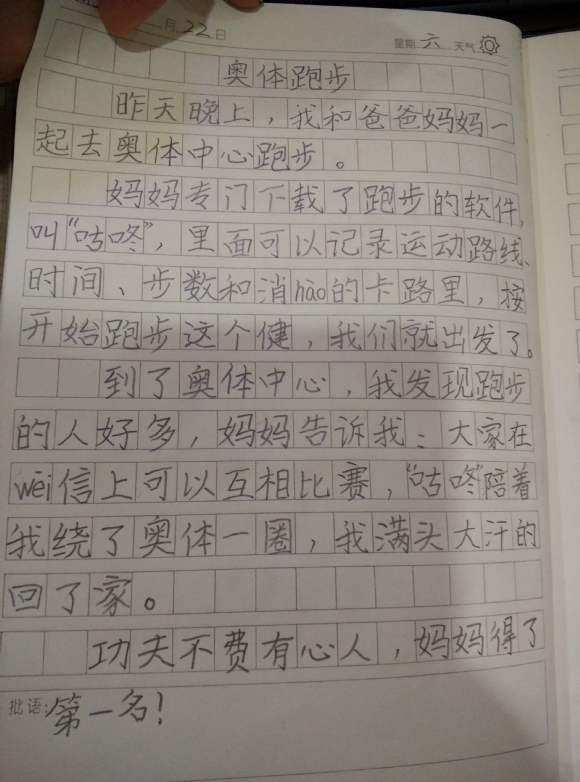 月22日 星期六 天气
奥体跑步
昨天晚上，我和爸爸妈妈一
起去奥体中心跑步。
妈妈专门下载了跑步的软件，
叫“咕咚”，里面可以记录运动路线、
时间、步数和消hào的卡路里，按
开始跑步这个健，我们就出发了。
到了奥体中心，我发现跑步
的人好多，妈妈告诉我：大家在
wēi信上可以互相比赛，“咕咚”陪着
我绕了奥体一圈，我满头大汗的
回了家。
功夫不费有心人，妈妈得了
批语：第一名！